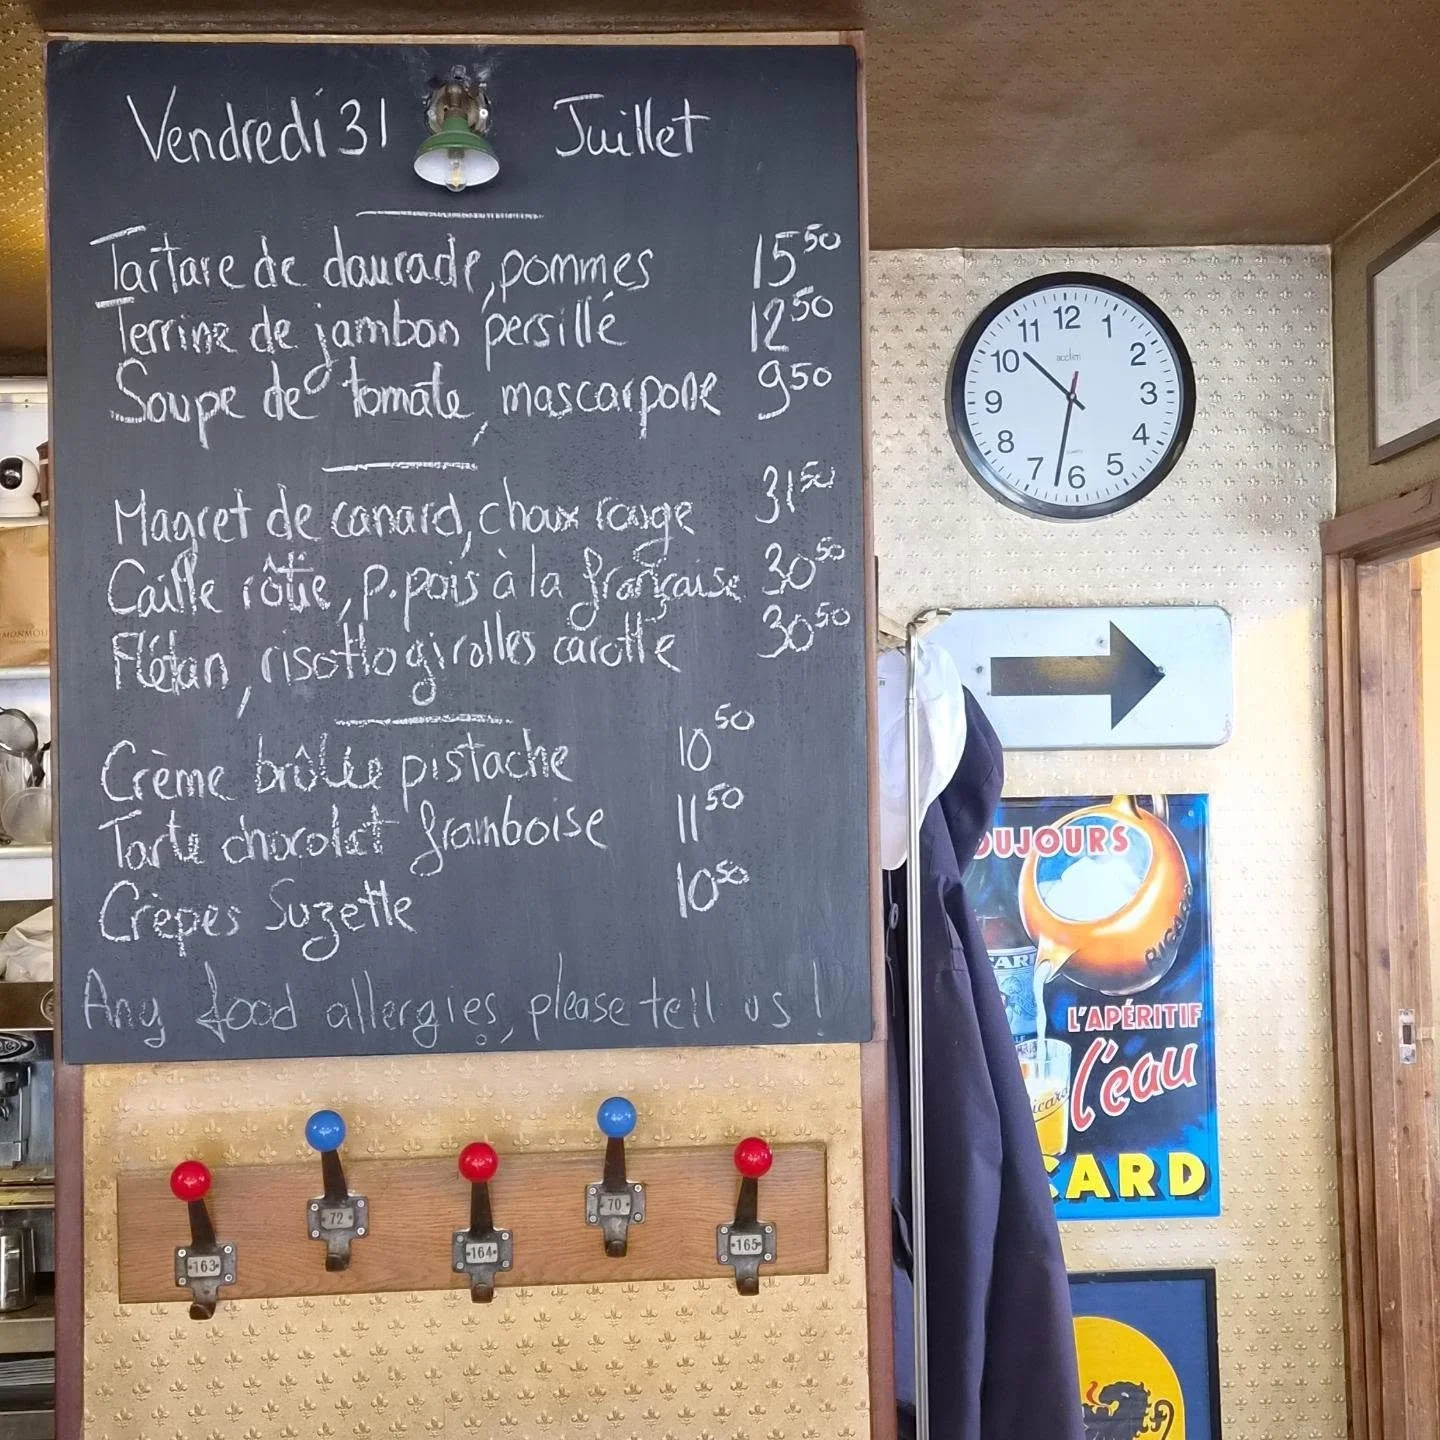 Vendredi 31 Juillet
Tartare de daurade, pommes 15 50
Terrine de jambon persillé 12 50
Soupe de tomate, mascarpone 9 50
Magret de canard, choux rouge 31 50
Caille rôtie, p.pois à la française 30 50
Flétan, risotto girolles carotte 30 50
Crème brûlée pistache 10 50
Tarte chocolat framboise 11 50
Crêpes Suzette 10 50
Any food allergies, please tell us!
12
11
1
10
2
9
3
8
4
7
5
6
acctim
QUARTZ
OUJOURS
RICARD
CARD
L'APÉRITIF
l'eau
icard
CARD
163
72
164
70
165
MONMOU